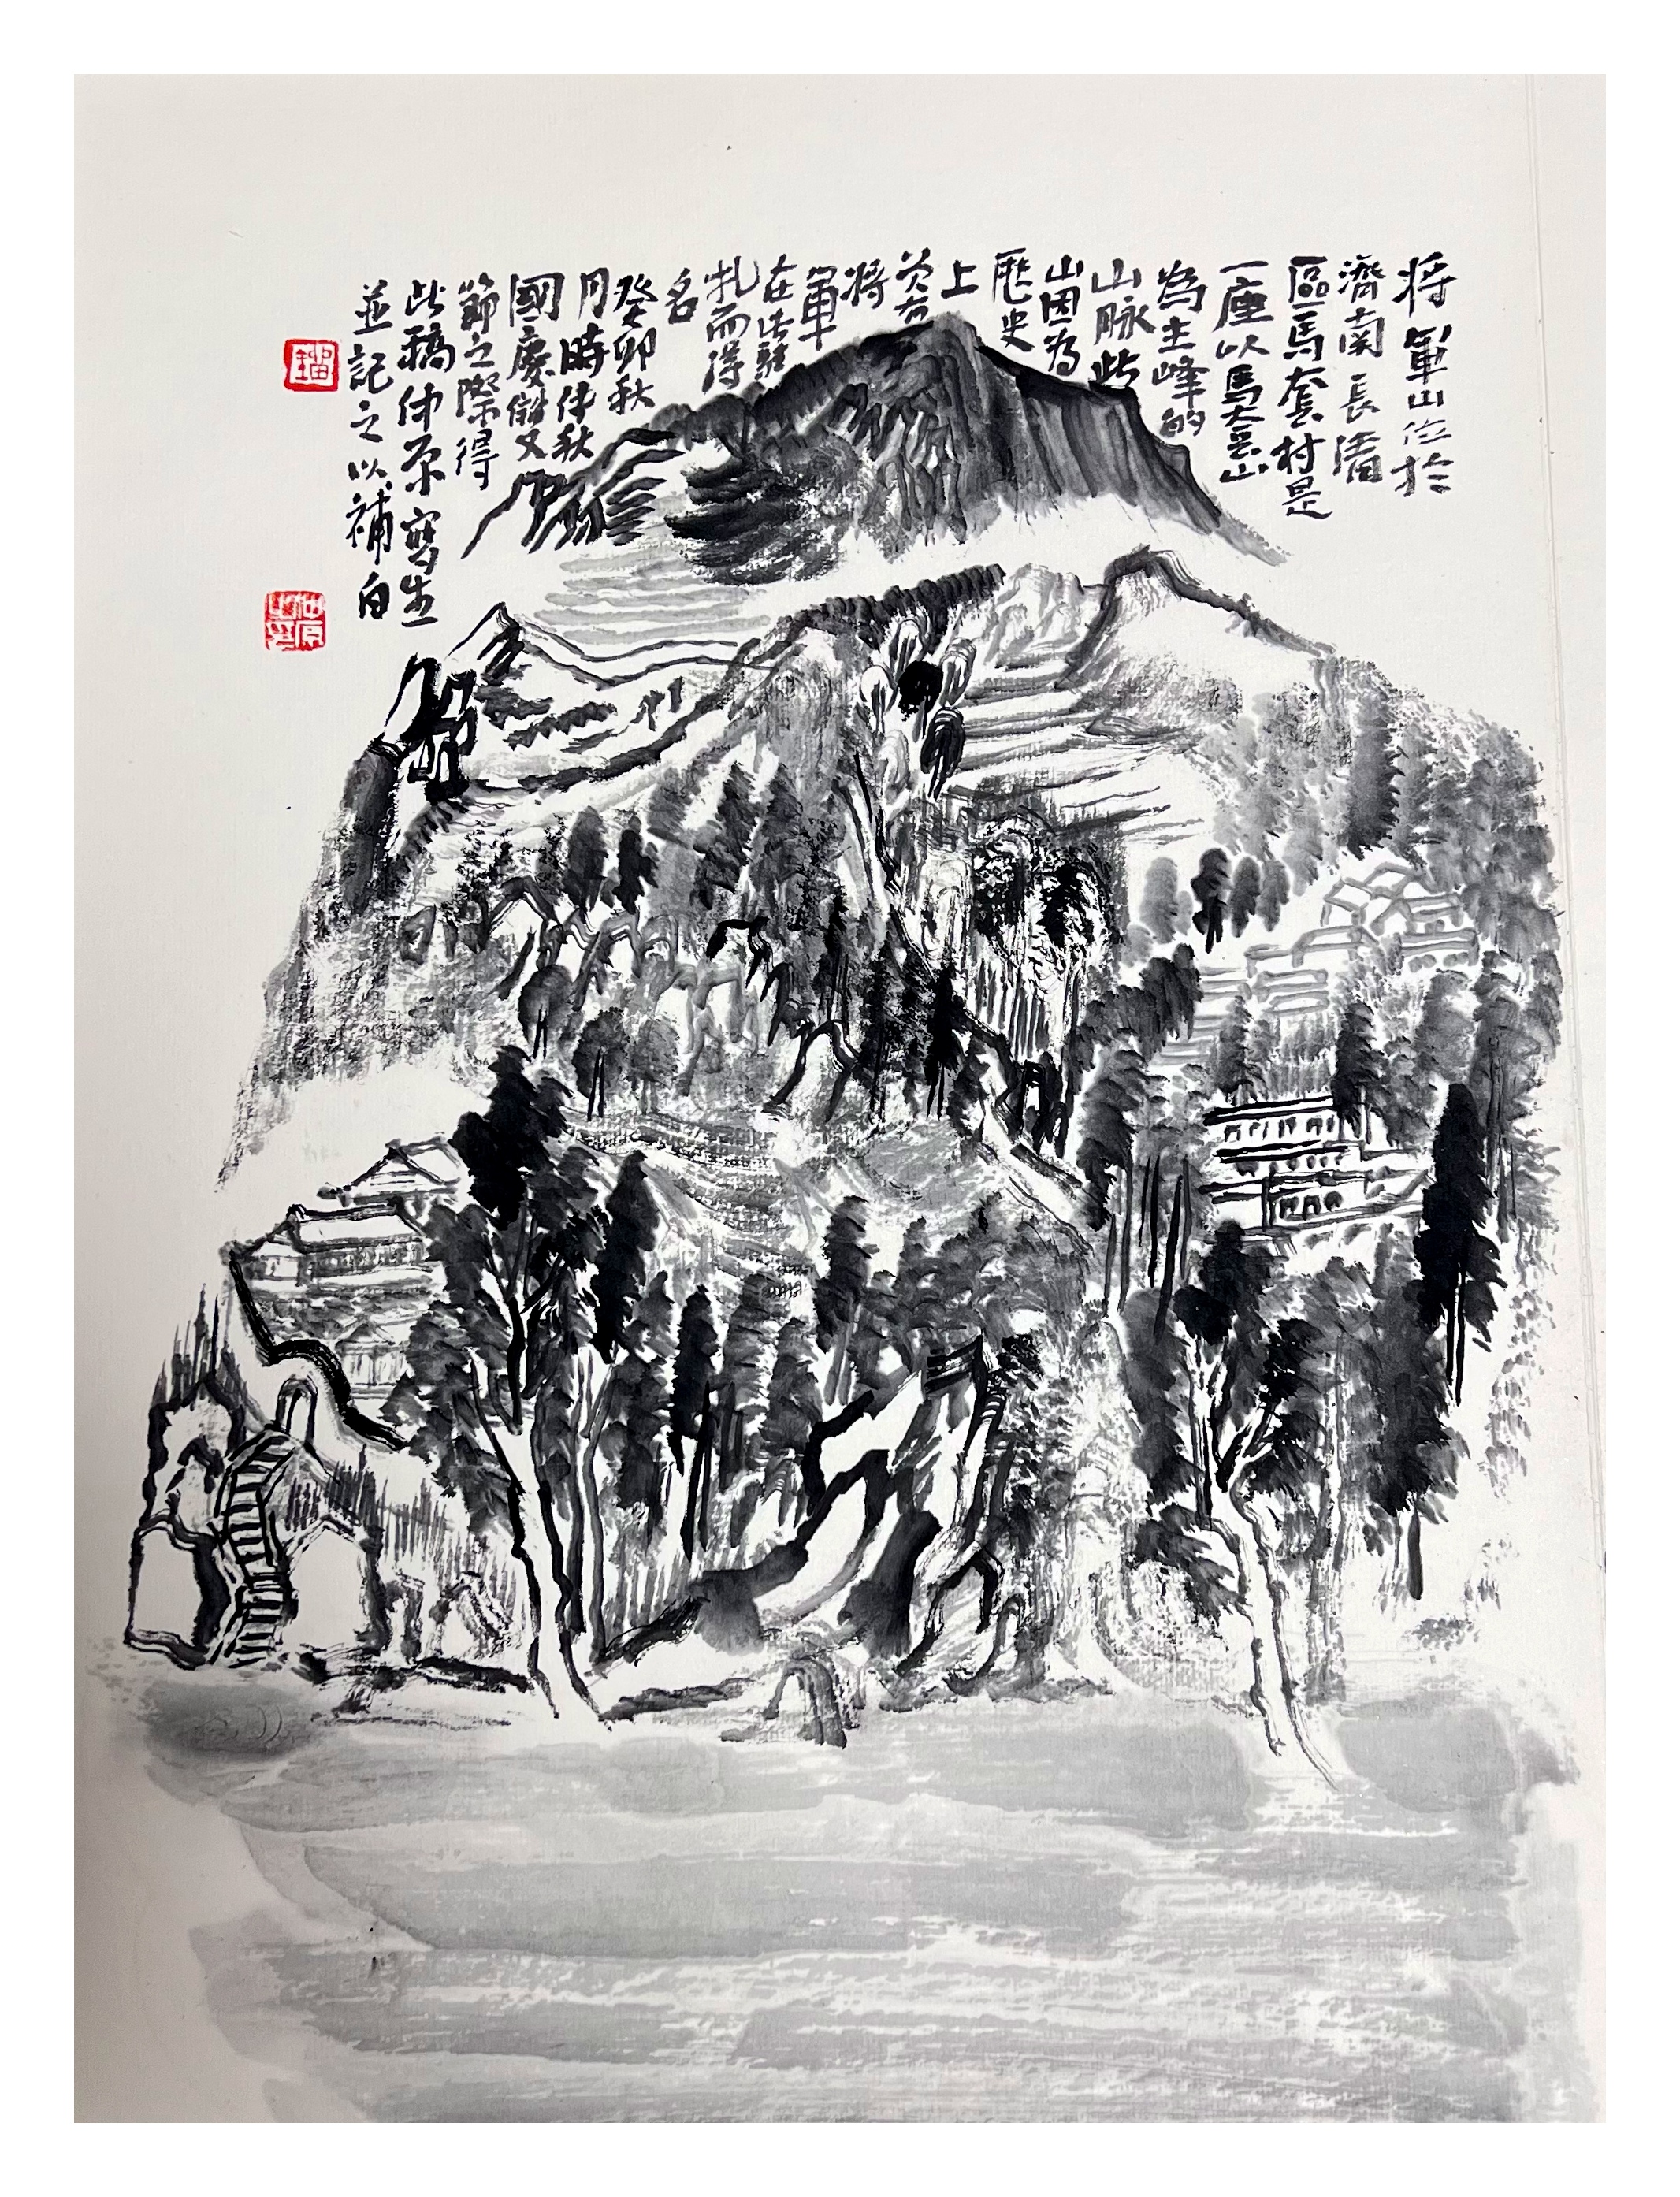 將軍山位於
濟南長清
區馬套村是
一座以馬大尖山
為主峰的
山脉此
山因為
歷史
上
曾有
將
軍
在此駐
扎而得
名
癸卯秋
月時仲秋
國慶雙
節之際得
此稿仲原寫生
並記之以補白
仲原
之印